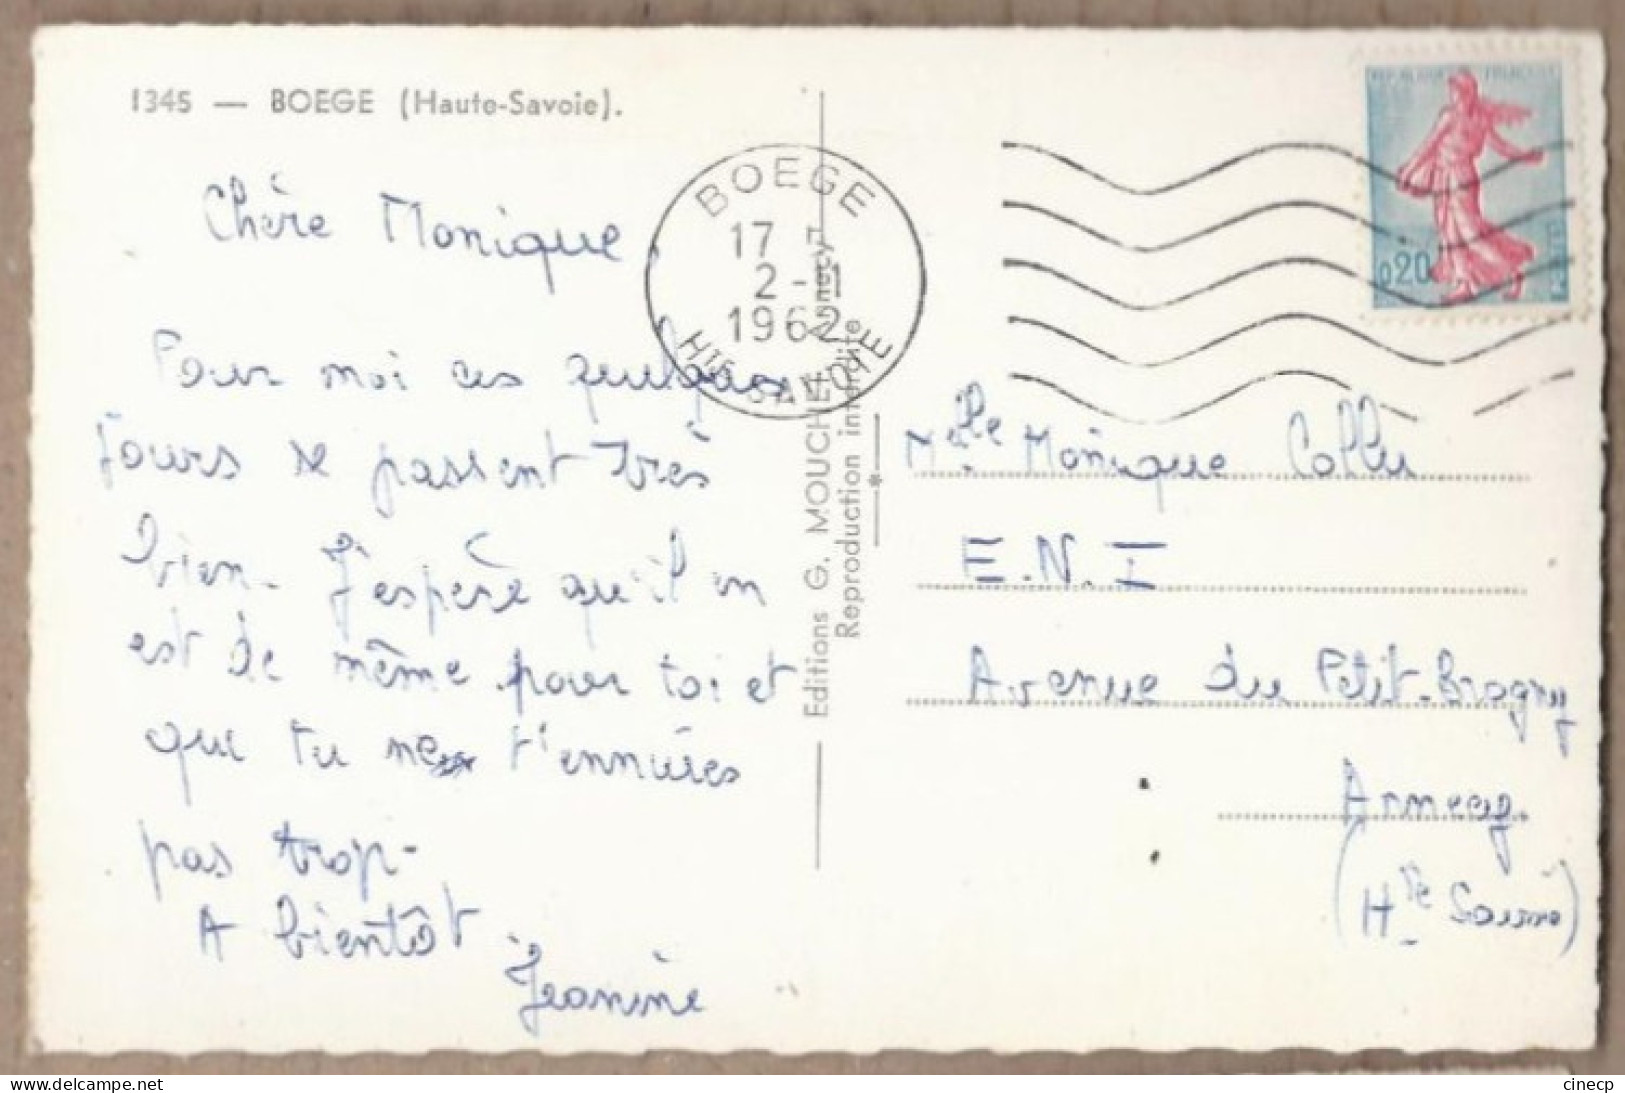 1345 — BOEGE (Haute-Savoie).
Chère Monique,
Pour moi ces quelques
jours se passent très
bien - J'espère qu'il en
est de même pour toi et
que tu ne t'ennuies
pas trop -
A bientôt
Jeanine
BOEGE
17
2 - 1
1962
HTE SAVOIE
Editions G. MOUCHET Annecy
Reproduction interdite
REPUBLIQUE FRANÇAISE
0,20
POSTES
Melle Monique
E.N.I
Avenue du Petit-Brogny
Annecy.
(Hte Savoie)
cinecp